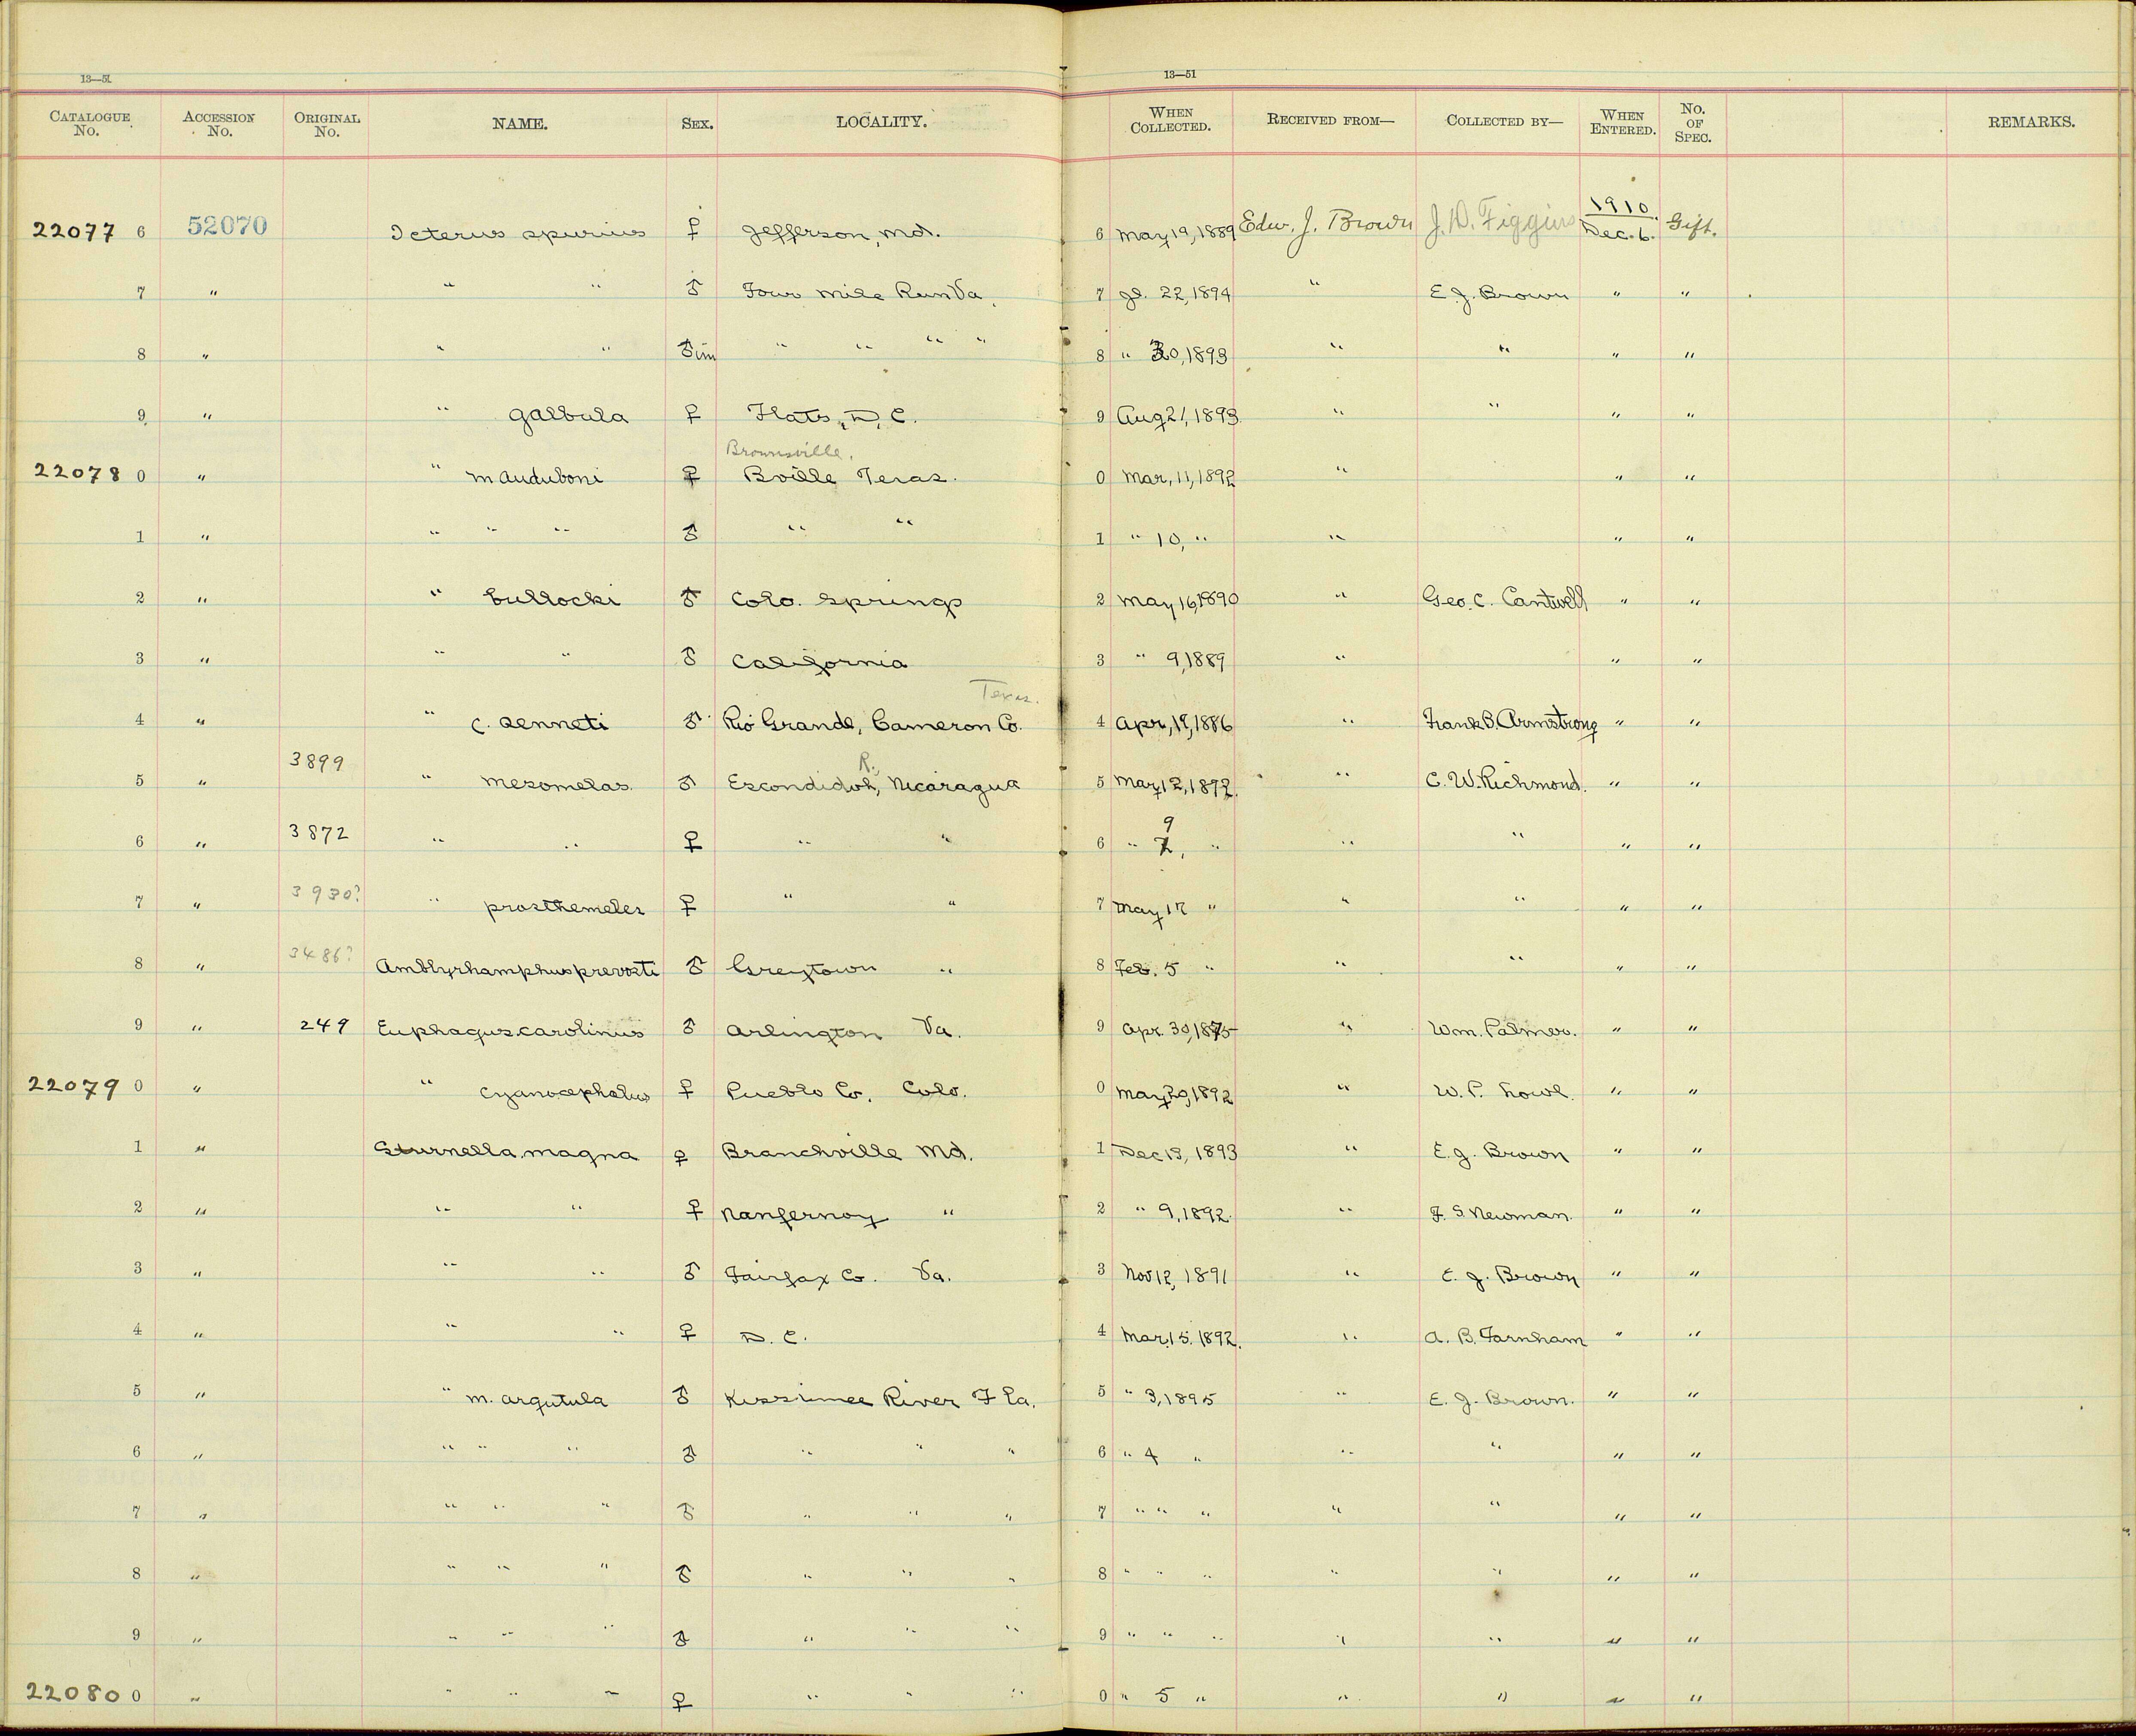 13—51 13—51
CATALOGUE No. ACCESSION No. ORIGINAL No. NAME. SEX. LOCALITY. WHEN COLLECTED. RECEIVED FROM— COLLECTED BY— WHEN ENTERED. NO. OF SPEC. REMARKS.
22077 6 52070 Icterus spurius ♀ Jefferson, Md. 6 May 19, 1889 Edw. J. Brown J. D. Figgins 1910 Dec. 6. Gift.
7 " " " ♂ Four Mile Run Va. 7 Jl. 22, 1894 " E J. Brown " "
8 " " " ♂ im " " " " 8 " 30, 1893 " " " "
9 " " galbula ♀ Flats, D. C. 9 Aug 21, 1893 " " " "
Brownsville,
22078 0 " " m auduboni ♀ Bville Texas. 0 Mar, 11, 1892 " " "
1 " " " " ♂ " " 1 " 10, " " " "
2 " " bullocki ♂ Colo. Springs 2 May 16, 1890 " Geo. C. Cantwell " "
3 " " " ♂ California 3 " 9, 1889 " " "
Texas.
4 " " c. senneti ♂ Rio Grande, Cameron Co. 4 Apr, 19, 1886 " Frank B. Armstrong " "
5 " 3899 " mesomelas ♂ Escondido R., Nicaragua 5 Mar 12, 1892. " C. W. Richmond. " "
6 " 3872 " " ♀ " " 6 " 9, " " " " "
7 " 3930? " prosthemeles ♀ " " 7 May 17 " " " " "
8 " 3486? Amblyrhamphus prevosti ♂ Greytown " 8 Feb. 5 " " " " "
9 " 249 Euphagus carolinus ♂ Arlington Va. 9 Apr. 30, 1875 " Wm. Palmer. " "
22079 0 " " cyanocephalus ♀ Pueblo Co. Colo. 0 May 20, 1892 " W. P. Lowe. " "
1 " Sturnella magna ♀ Branchville Md. 1 Dec 13, 1893 " E. J. Brown " "
2 " " " ♀ Nanfernoy " 2 " 9, 1892. " F. S. Newman. " "
3 " " " ♂ Fairfax Co. Va. 3 Nov 12, 1891 " E. J. Brown " "
4 " " " ♀ D. C. 4 Mar. 15. 1892. " A. B. Farnham " "
5 " " m. argutula ♂ Kissimee River Fla. 5 " 3, 1895 " E. J. Brown. " "
6 " " " " ♂ " " " 6 " 4 " " " " "
7 " " " " ♂ " " " 7 " " " " " " "
8 " " " " ♂ " " " 8 " " " " " " "
9 " " " " ♂ " " " 9 " " " " " " "
22080 0 " " " " ♀ " " " 0 " 5 " " " " "